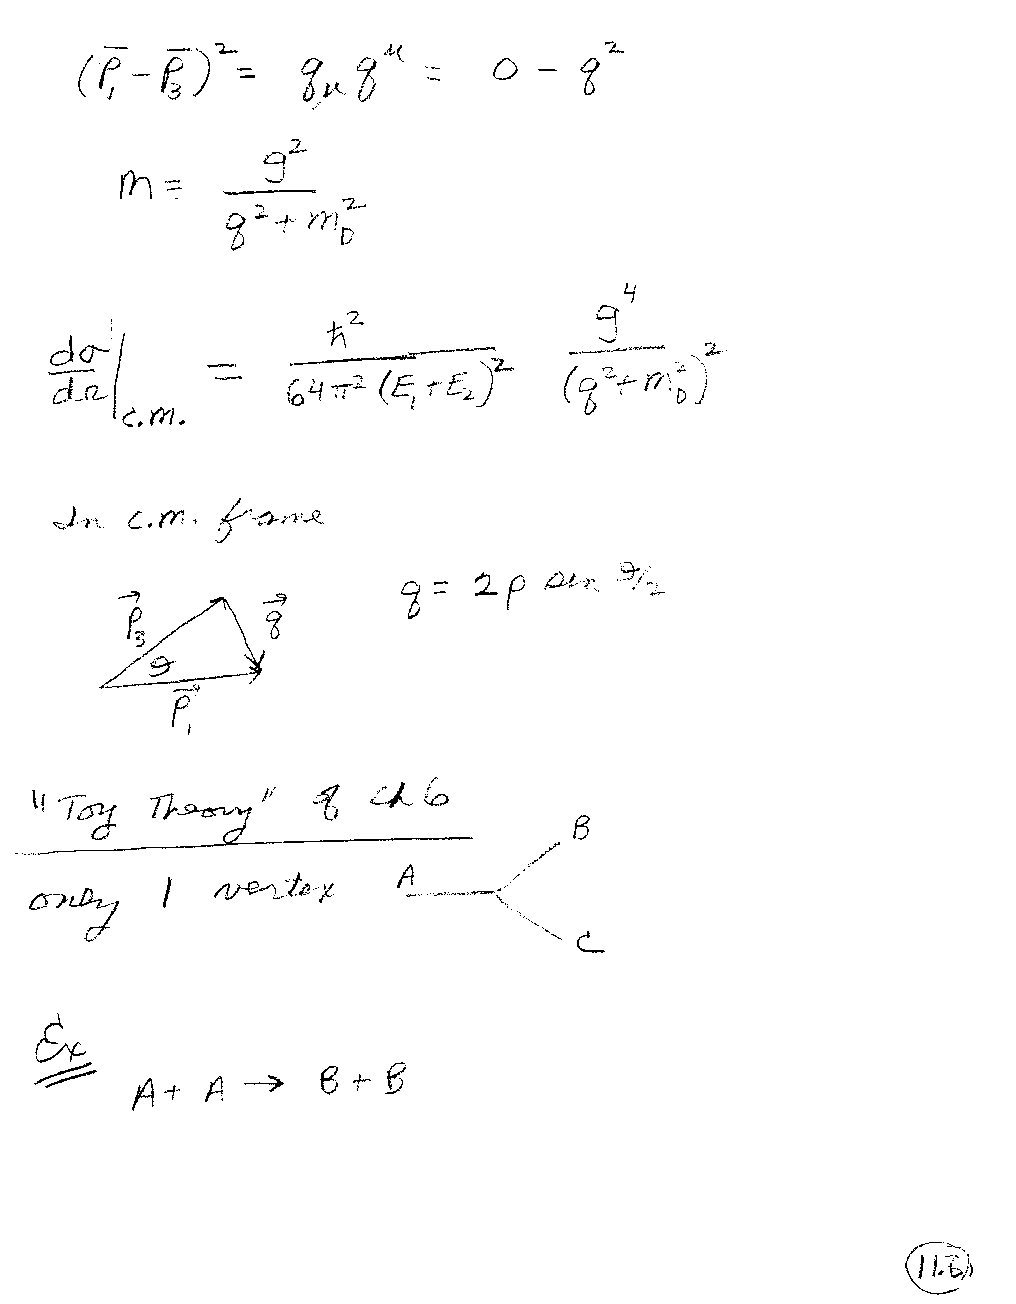 (p̄₁ - p̄₃)² = q_μ q^μ = 0 - q²
m = g² / (q² + m_D²)
dσ/dΩ|c.m. = ħ² / (64π² (E₁+E₂)²) g⁴ / (q² + m_D²)²
In c.m. frame
q = 2p sin θ/2
p⃗₃ q⃗
θ
p⃗₁
"Toy Theory" of ch 6
B
only 1 vertex A
C
Ex
A + A → B + B